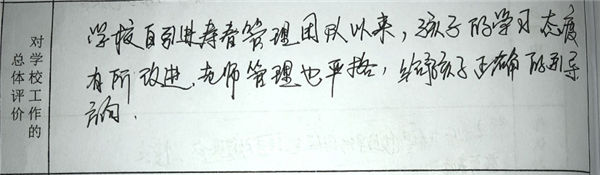 对学校工作的
总体评价
学校自引进寿春管理团队以来，孩子的学习态度
有所改进，老师管理也严格，给予孩子正确的引导
方向．